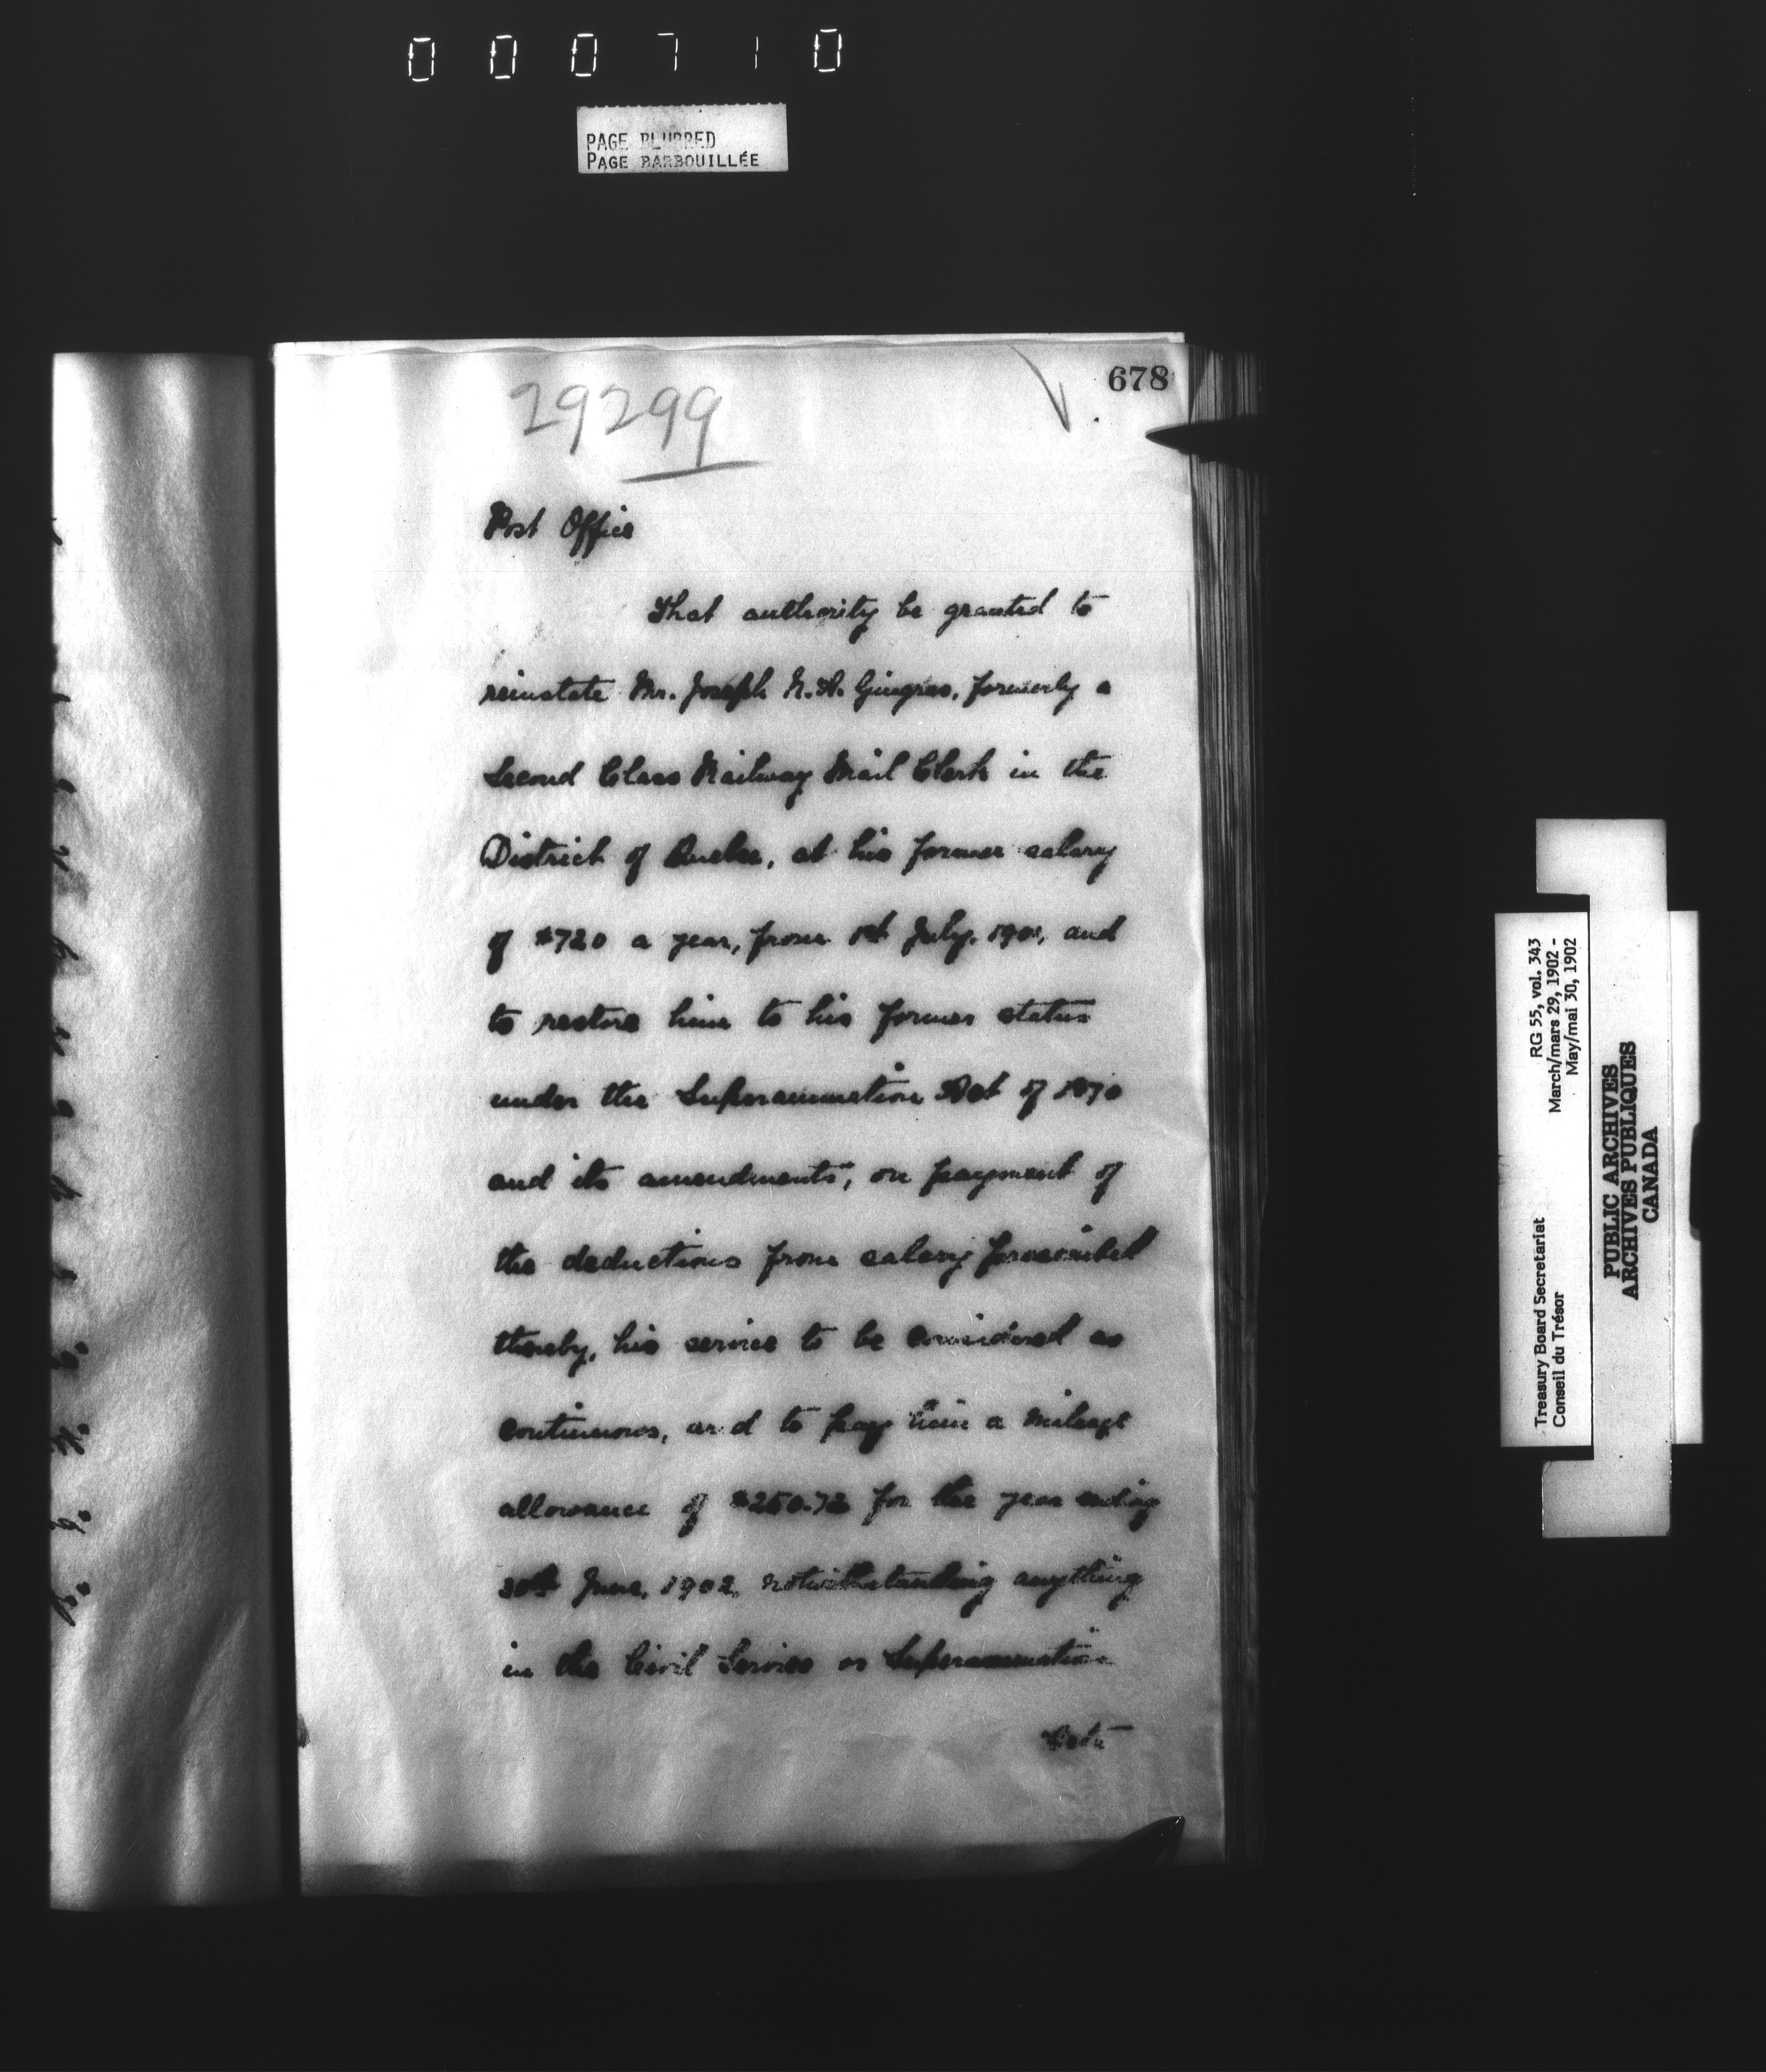 000710
PAGE BLURRED
PAGE BARBOUILLÉE
678
29299
Post Office
That authority be granted to
reinstate Mr. Joseph N. A. Gingras, formerly a
Second Class Railway Mail Clerk in the
District of Quebec, at his former salary
of $720 a year, from 1st July, 1901, and
to restore him to his former status
under the Superannuation Act of 1870
and its amendments, on payment of
the deductions from salary prescribed
thereby, his service to be considered as
continuous, and to pay him a mileage
allowance of $250.72 for the year ending
30th June, 1902, notwithstanding anything
in the Civil Service or Superannuation
Acts
Treasury Board Secretariat RG 55, vol. 343
Conseil du Trésor March/mars 29, 1902 -
May/mai 30, 1902
PUBLIC ARCHIVES
ARCHIVES PUBLIQUES
CANADA